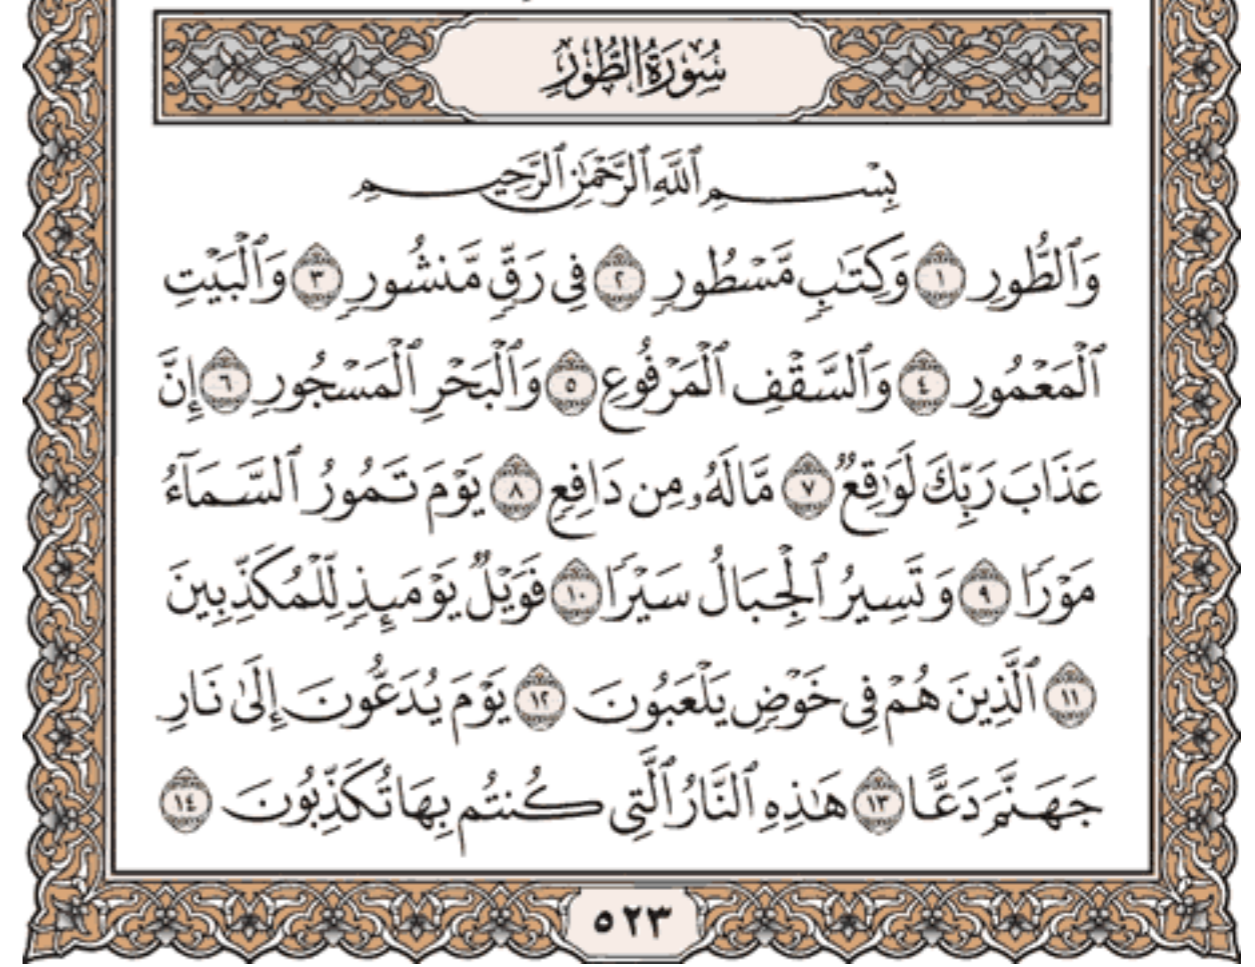 سُورَةُ الطُّورِ
بِسۡمِ ٱللَّهِ ٱلرَّحۡمَٰنِ ٱلرَّحِيمِ
وَٱلطُّورِ ١ وَكِتَٰبٖ مَّسۡطُورٖ ٢ فِي رَقّٖ مَّنشُورٖ ٣ وَٱلۡبَيۡتِ
ٱلۡمَعۡمُورِ ٤ وَٱلسَّقۡفِ ٱلۡمَرۡفُوعِ ٥ وَٱلۡبَحۡرِ ٱلۡمَسۡجُورِ ٦ إِنَّ
عَذَابَ رَبِّكَ لَوَٰقِعٞ ٧ مَّا لَهُۥ مِن دَافِعٖ ٨ يَوۡمَ تَمُورُ ٱلسَّمَآءُ
مَوۡرٗا ٩ وَتَسِيرُ ٱلۡجِبَالُ سَيۡرٗا ١٠ فَوَيۡلٞ يَوۡمَئِذٖ لِّلۡمُكَذِّبِينَ
١١ ٱلَّذِينَ هُمۡ فِي خَوۡضٖ يَلۡعَبُونَ ١٢ يَوۡمَ يُدَعُّونَ إِلَىٰ نَارِ
جَهَنَّمَ دَعًّا ١٣ هَٰذِهِ ٱلنَّارُ ٱلَّتِي كُنتُم بِهَا تُكَذِّبُونَ ١٤
٥٢٣